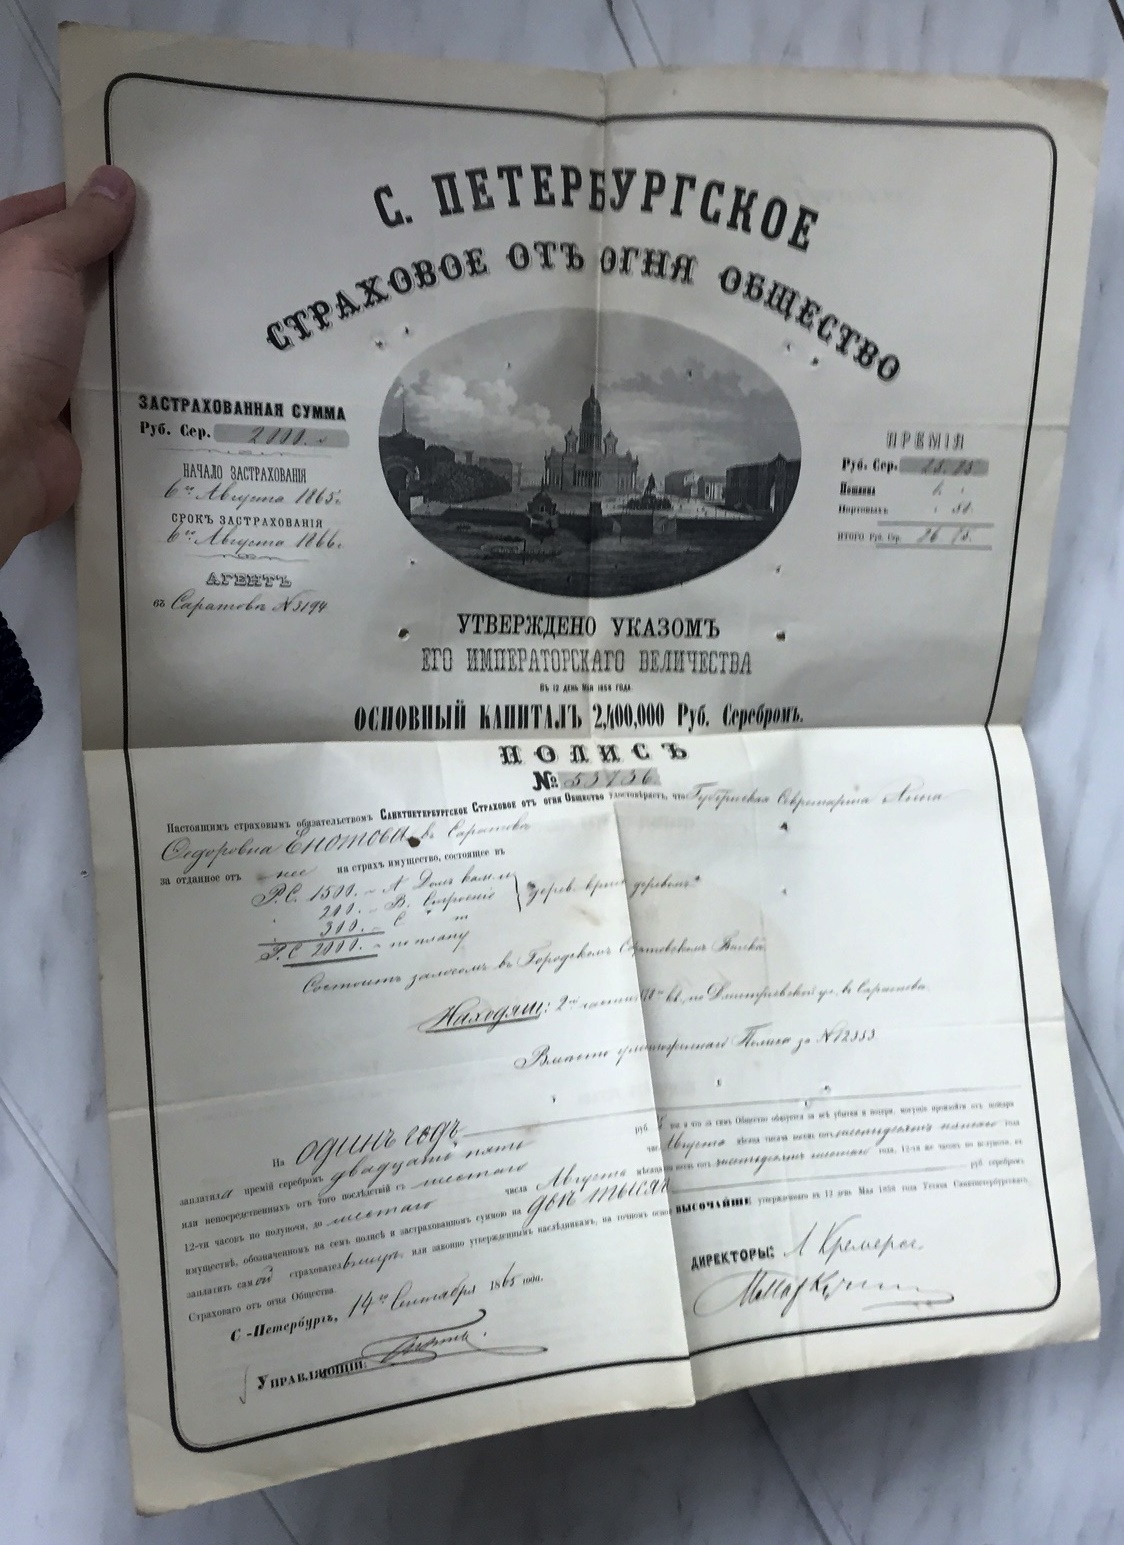 С. ПЕТЕРБУРГСКОЕ
СТРАХОВОЕ ОТЪ ОГНЯ ОБЩЕСТВО
ЗАСТРАХОВАННАЯ СУММА
Руб. Сер. 2000.
НАЧАЛО ЗАСТРАХОВАНІЯ
6го Августа 1865г.
СРОКЪ ЗАСТРАХОВАНІЯ
6го Августа 1866г.
АГЕНТЪ
въ Саратовѣ № 3194
ПРЕМІЯ
Руб. Сер. 25. 75
Пошлина
Портовыхъ 50.
ИТОГО Руб. Сер. 26 75.
УТВЕРЖДЕНО УКАЗОМЪ
ЕГО ИМПЕРАТОРСКАГО ВЕЛИЧЕСТВА
ВЪ 12 ДЕНЬ МАЯ 1858 ГОДА.
ОСНОВНЫЙ КАПИТАЛЪ 2,400,000 Руб. Серебромъ.
ПОЛИСЪ
№ 53736
Настоящимъ страховымъ обязательствомъ САНКТПЕТЕРБУРГСКОЕ СТРАХОВОЕ ОТЪ ОГНЯ ОБЩЕСТВО удостовѣряетъ, что Губернская Секретарша Анна
Ѳедоровна Енотова въ Саратовѣ
за отданное отъ нее на страхъ имущество, состоящее въ
Р.С. 1500. - А Домъ
200. - В. Строеніе
300. - С " "
Р.С 2000. - по плану
дерев. крыт деревомъ
Состоитъ залогомъ въ Городскомъ Саратовскомъ Банкѣ
Находящ: 2й части по Дмитріевской ул. въ Саратовѣ.
Вмѣсто Полиса за № 12353
На одинъ годъ
заплатила премій серебромъ двадцать пять руб.
и что за симъ Общество обязуется за всѣ убытки и потери, могущіе произойти отъ пожара
или непосредственныхъ отъ того послѣдствій съ шестаго числа Августа мѣсяца тысяча восемь сотъ шестьдесятъ пятаго года
12-ти часовъ по полуночи, до шестаго числа Августа мѣсяца восемь сотъ шестьдесятъ шестаго года, 12-ти же часовъ по полуночи, въ
имуществѣ, обозначенномъ на семъ полисѣ и застрахованномъ суммою на двѣ тысячи руб серебромъ
заплатить самой или законно утвержденнымъ наслѣдникамъ, на точномъ ВЫСОЧАЙШЕ утвержденнаго въ 12 день Мая 1858 года Устава Санктпетербургскаго
Страховаго отъ огня Общества.
С -Петербургъ, 14го Сентября 1865 года.
ДИРЕКТОРЫ:
УПРАВЛЯЮЩІЙ: